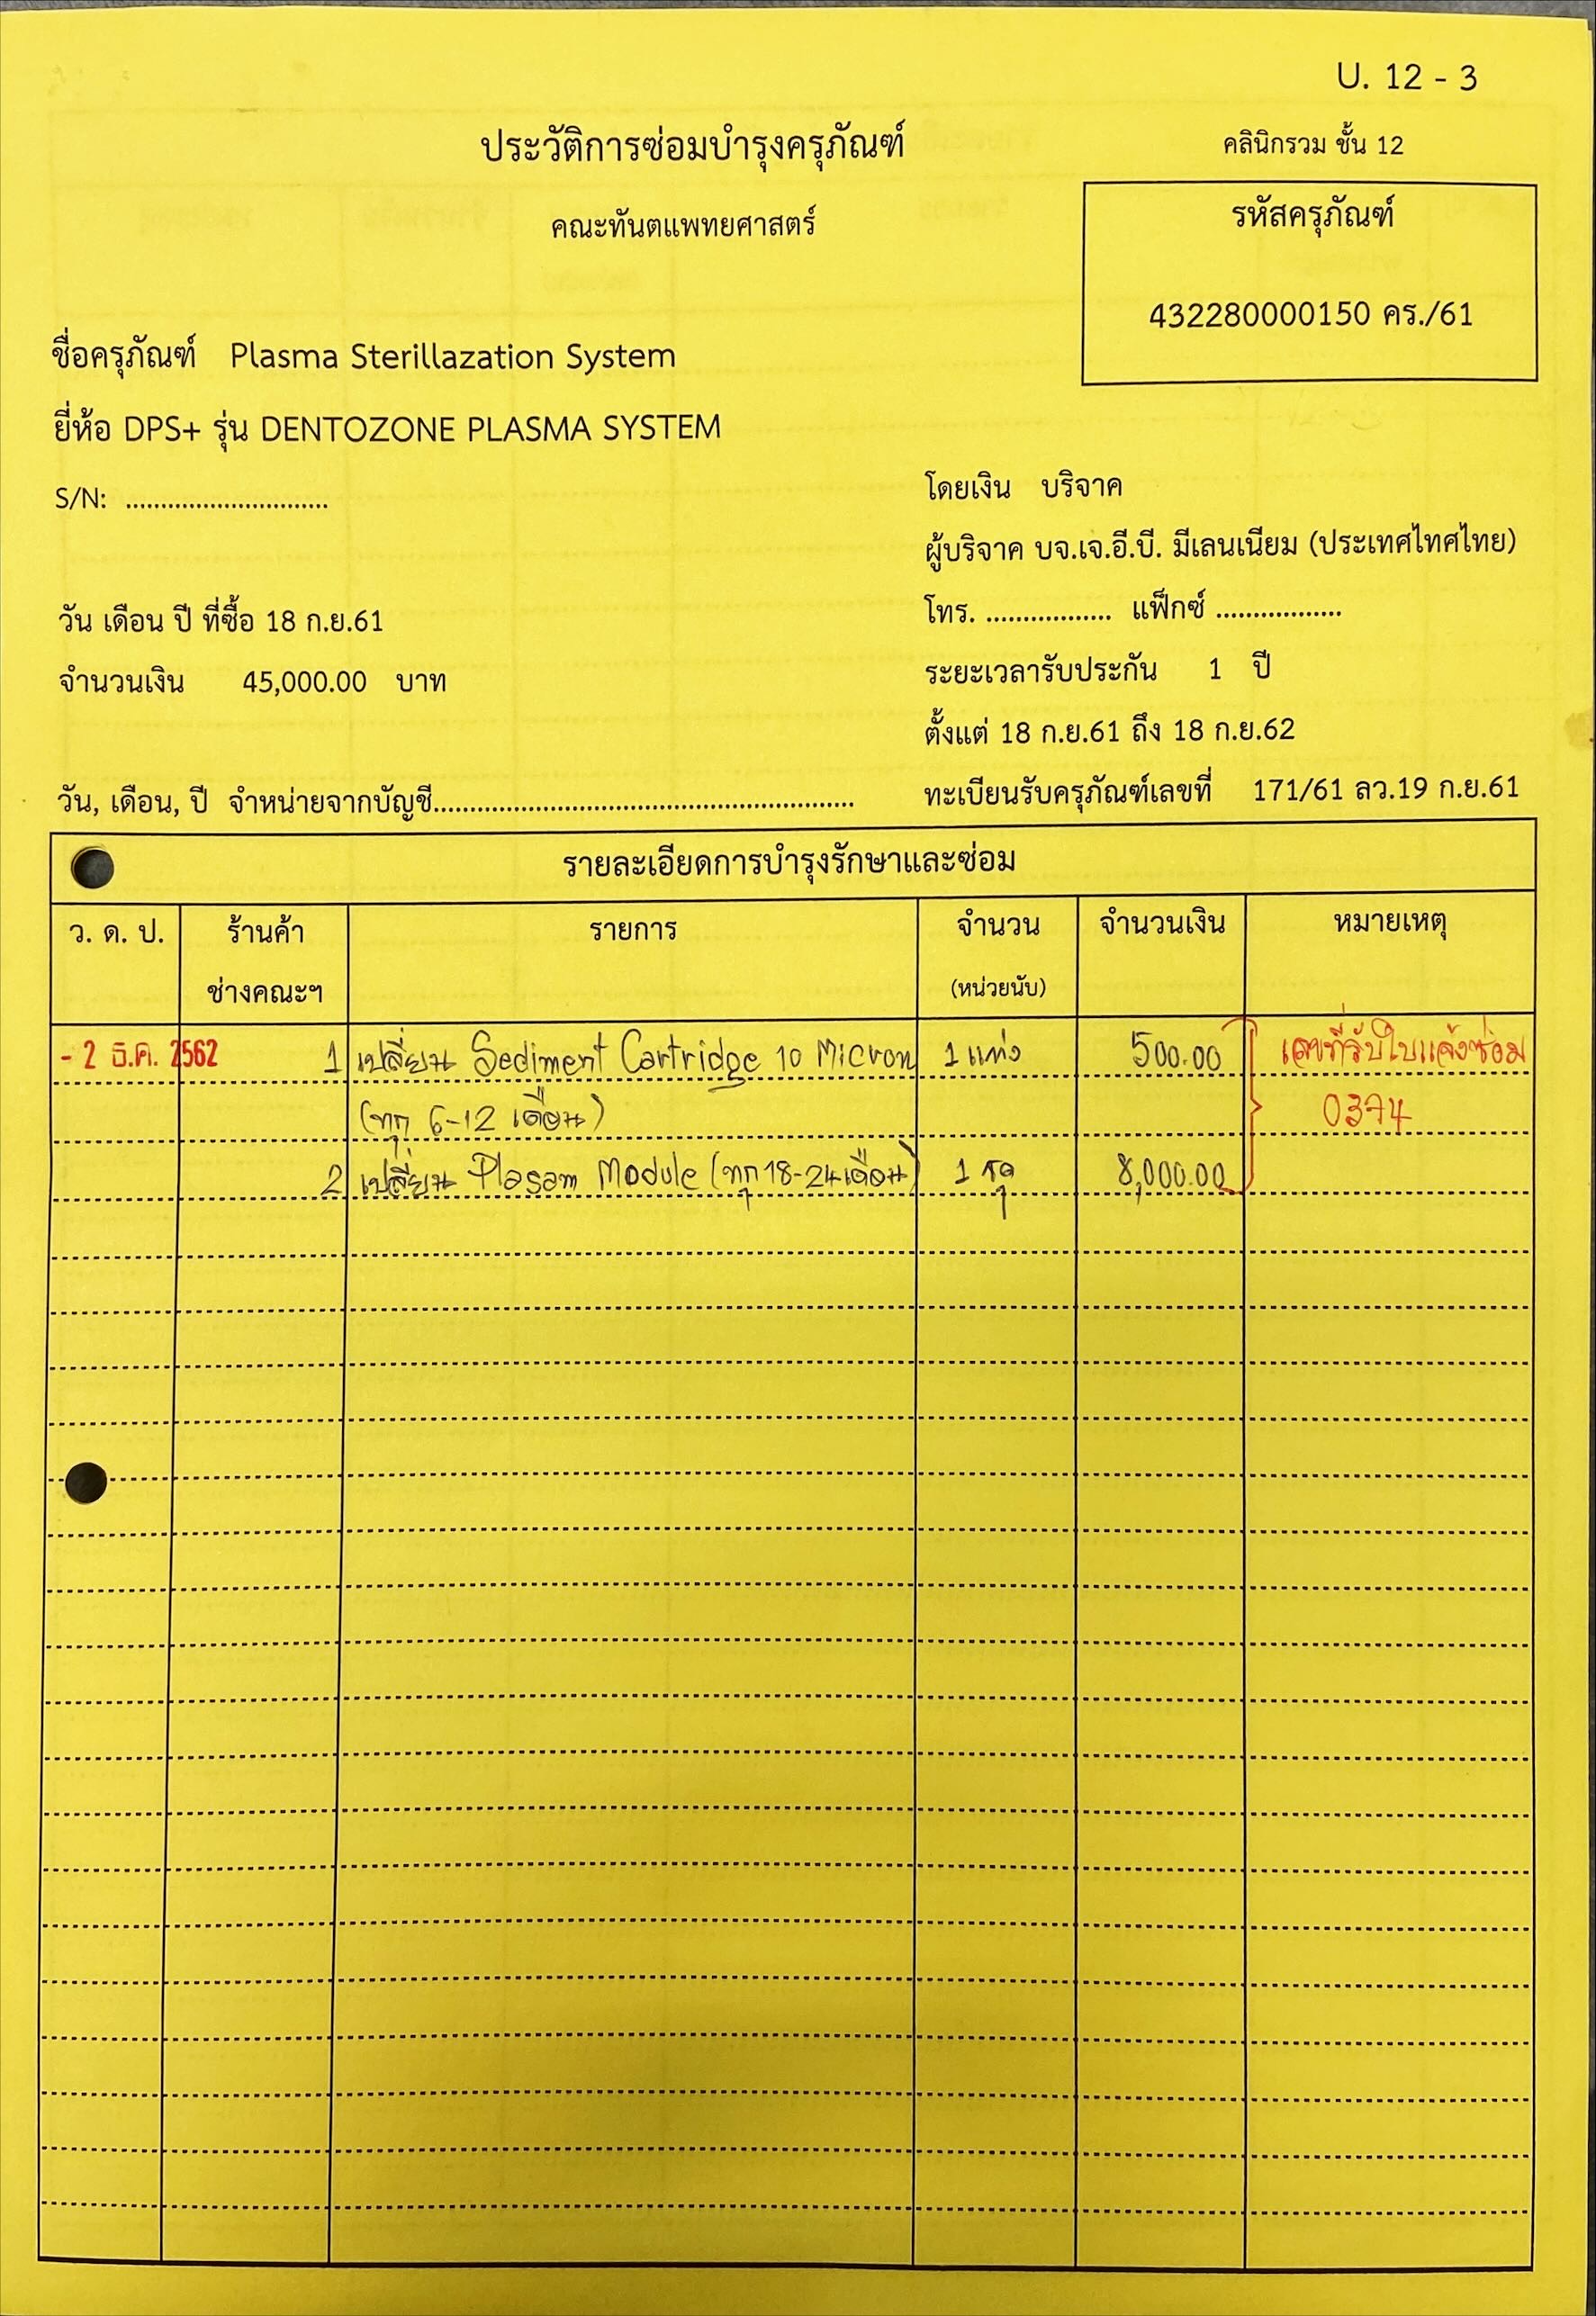 U. 12 - 3
ประวัติการซ่อมบำรุงครุภัณฑ์
คลินิกรวม ชั้น 12
คณะทันตแพทยศาสตร์
รหัสครุภัณฑ์
432280000150 คร./61
ชื่อครุภัณฑ์ Plasma Sterillazation System
ยี่ห้อ DPS+ รุ่น DENTOZONE PLASMA SYSTEM
S/N: .............................
โดยเงิน บริจาค
ผู้บริจาค บจ.เจ.อี.บี. มีเลนเนียม (ประเทศไทศไทย)
วัน เดือน ปี ที่ซื้อ 18 ก.ย.61
โทร. .................. แฟ็กซ์ ..................
จำนวนเงิน 45,000.00 บาท
ระยะเวลารับประกัน 1 ปี
ตั้งแต่ 18 ก.ย.61 ถึง 18 ก.ย.62
วัน, เดือน, ปี จำหน่ายจากบัญชี............................................................
ทะเบียนรับครุภัณฑ์เลขที่ 171/61 ลว.19 ก.ย.61
รายละเอียดการบำรุงรักษาและซ่อม
ว. ด. ป. ร้านค้า รายการ จำนวน จำนวนเงิน หมายเหตุ
ช่างคณะฯ (หน่วยนับ)
- 2 ธ.ค. 2562 1 เปลี่ยน Sediment Cartridge 10 Micron 1 แท่ง 500.00 เลขที่รับใบแจ้งซ่อม
(ทุก 6-12 เดือน) 0374
2 เปลี่ยน Plasam Module (ทุก 18-24 เดือน) 1 ชุด 8,000.00